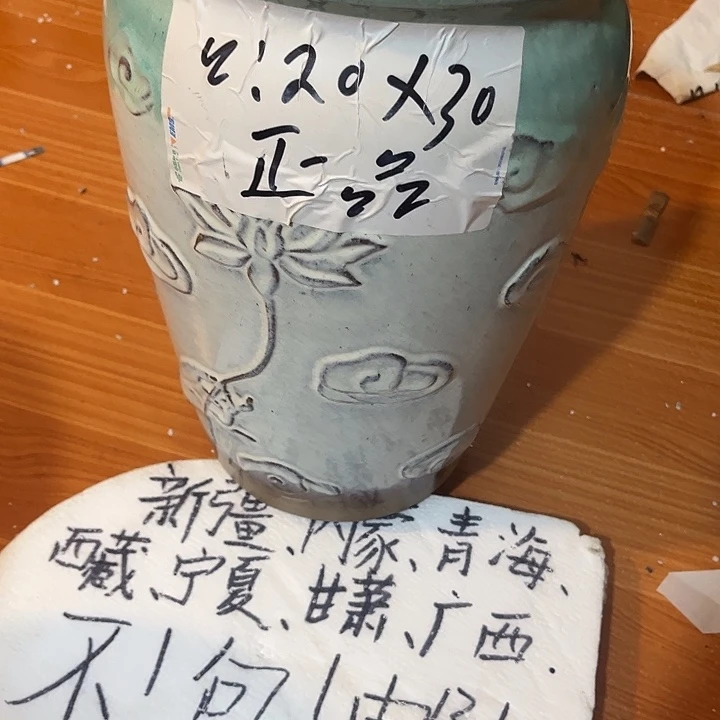 口:20X30
正品
新疆、内蒙、青海、
西藏、宁夏、甘萧、广西.
不包邮